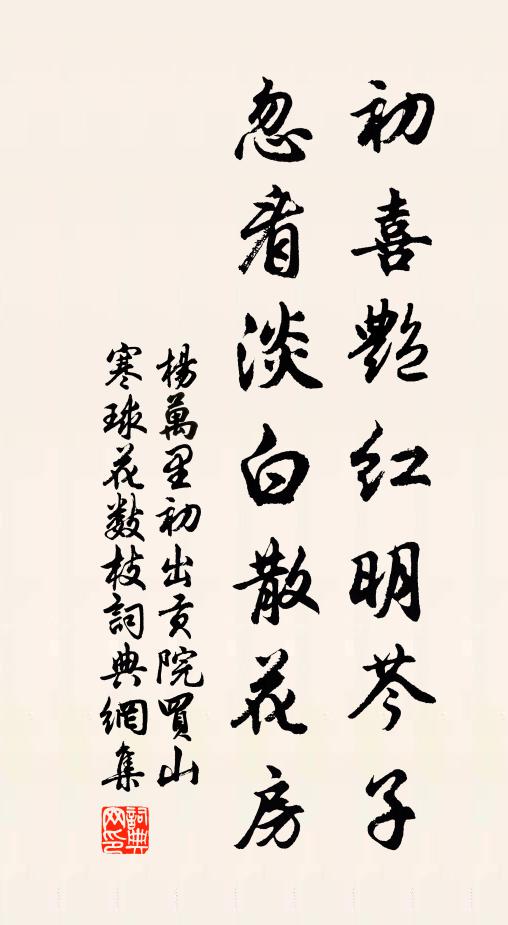 初喜艶红明芩子
忽看淡白散花房
楊萬里初出贡院買山
寒球花数枝詞典網集
詞典网印